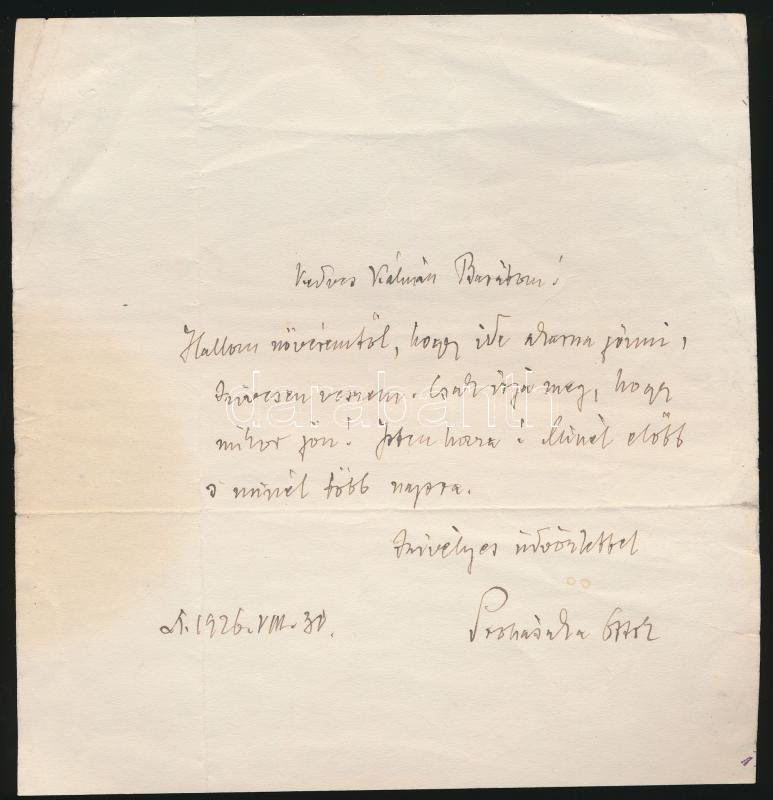 Kedves Kálmán Barátom!
Hallom növéremtöl, hogy ide akarna jönni,
szivesen veszem. Csak irja meg, hogy
mikor jön! Isten hozza! Minél előbb
s minél több napra.
Szivélyes üdvözlettel
1926. VIII. 30.
Prohászka Ottok
darabanth